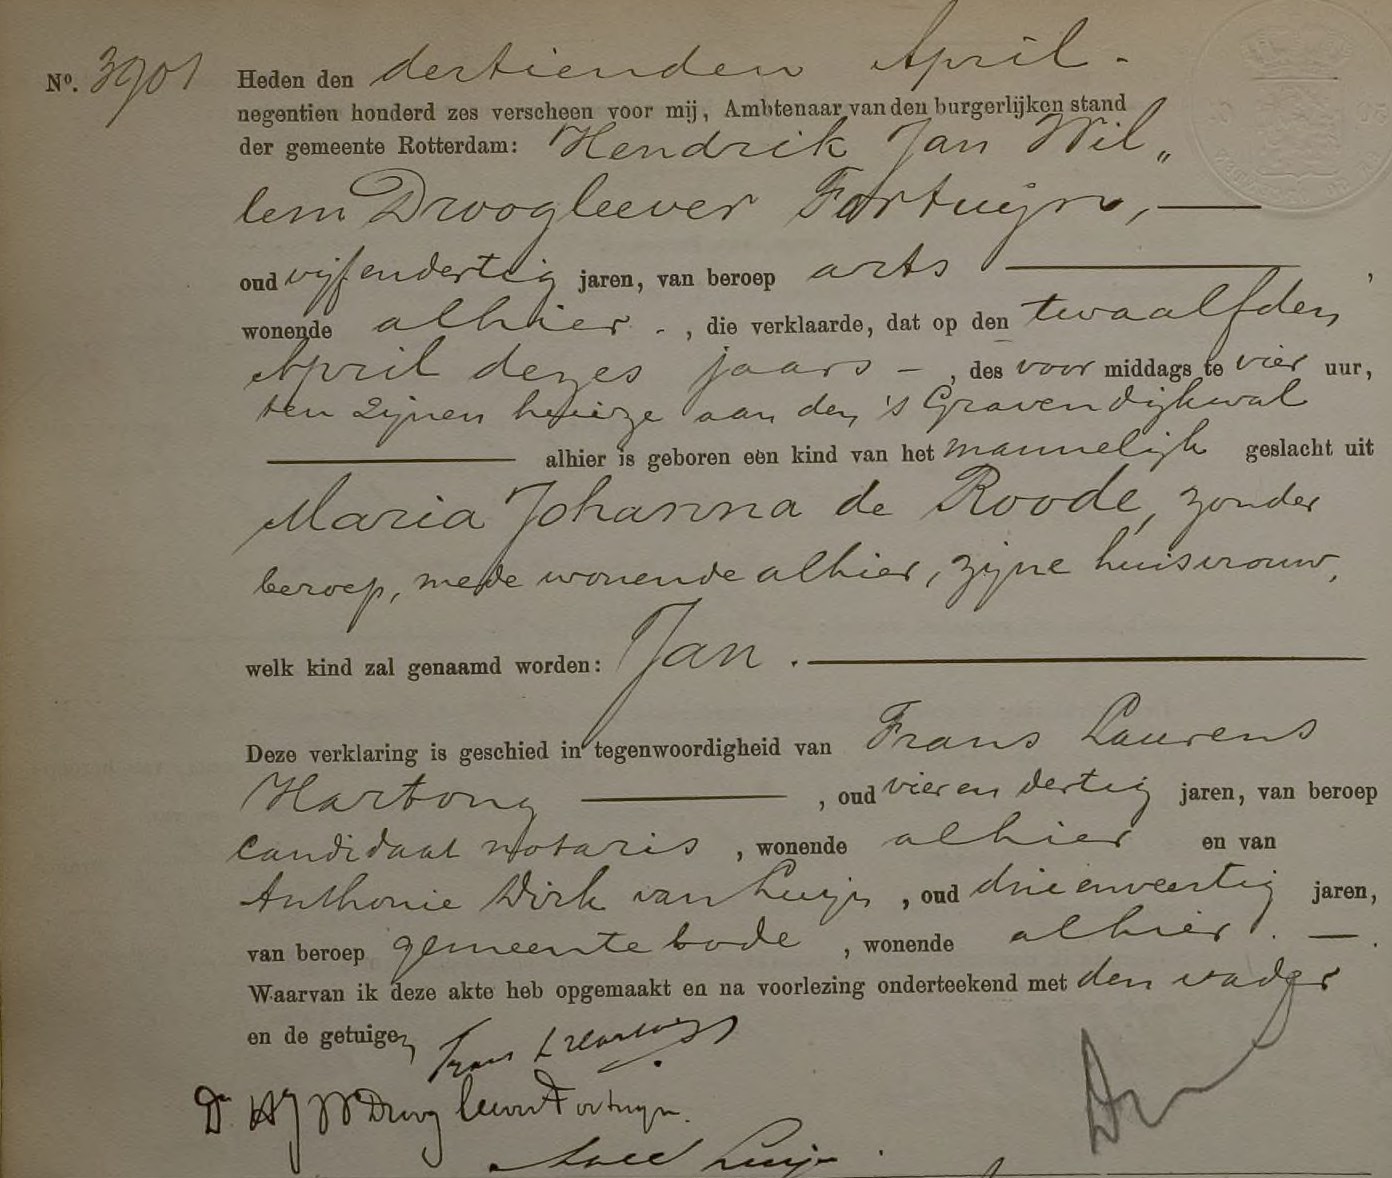 No. 3901 Heden den dertienden April -
negentien honderd zes verscheen voor mij, Ambtenaar van den burgerlijken stand
der gemeente Rotterdam: Hendrik Jan Wil„
lem Droogleever Fortuijn,
oud vijfendertig jaren, van beroep arts ,
wonende alhier - , die verklaarde, dat op den twaalfden
April dezes jaars - , des voor middags te vier uur,
ten zijnen huize aan den 's Gravendijkwal
alhier is geboren een kind van het mannelijk geslacht uit
Maria Johanna de Roode, zonder
beroep, mede wonende alhier, zijne huisvrouw,
welk kind zal genaamd worden: Jan .
Deze verklaring is geschied in tegenwoordigheid van Frans Laurens
Hartong , oud vier en dertig jaren, van beroep
candidaat notaris , wonende alhier en van
Anthonie Dirk van Luijn , oud drie en veertig jaren,
van beroep gemeentebode , wonende alhier . — .
Waarvan ik deze akte heb opgemaakt en na voorlezing onderteekend met den vader
en de getuigen
Frans L Hartong
Dr HJW Droogleever Fortuijn.